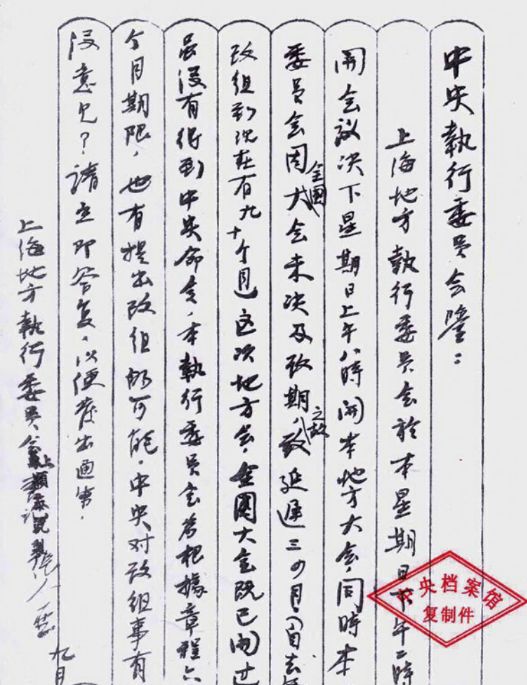 中央执行委员会鉴：
上海地方執行委員会於本星期日下午二時
開会議决下星期日上午八時開本地方大会，同時本
委員会因全國大会未决及改期之故，致延遲三四月，自去年
改组到现在有九十个月，这次地方会，全國大会既已開过
尽没有得到中央命令，本執行委員会若根據章程六
个月期限，也有提出改组的可能，中央对改组事有
没意见？請立即答复，以便发出通告。
上海地方執行委員会
九月
中央档案馆
复制件